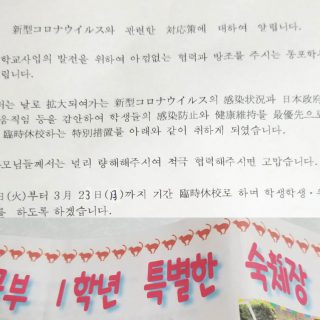 新型コロナウイルス와 관련한 対応策에 대하여 알립니다.
학교사업의 발전을 위하여 아낌없는 협력과 방조를 주시는 동포학부
립니다.
서는 날로 拡大되여가는 新型コロナウイルス의 感染状況과 日本政府
움직임 등을 감안하여 학생들의 感染防止와 健康維持를 最優先으로
臨時休校하는 特別措置를 아래와 같이 취하게 되였습니다.
모님들께서는 널리 량해해주시여 적극 협력해주시면 고맙습니다.
日(火)부터 3月 23日(月)까지 기간 臨時休校로 하며 학생학생・
를 하도록 하겠습니다.
공부 1학년 특별한 숙제장